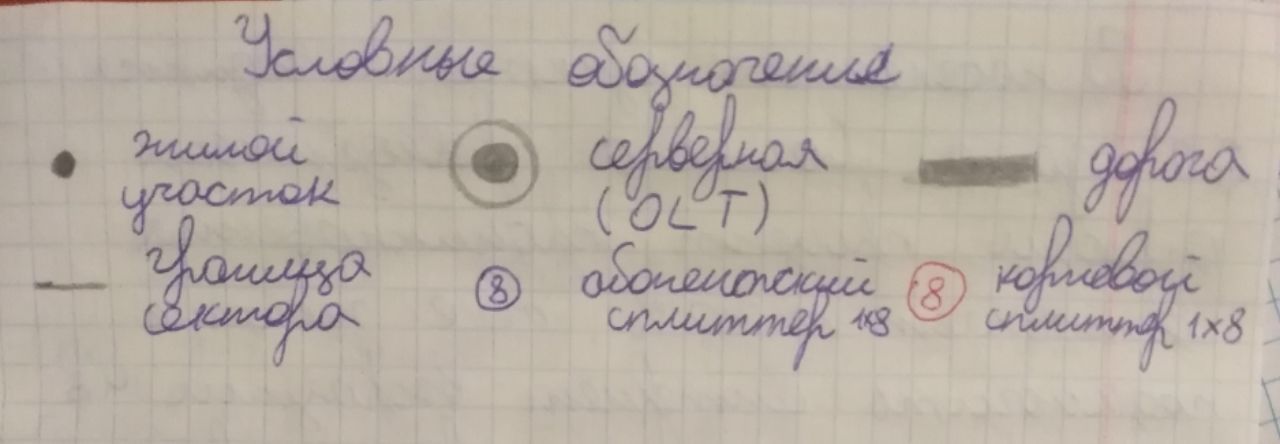 Условные обозначения
жилой участок
серверная (OLT)
дорога
граница сектора
8
абонентский сплиттер 1x8
8
корневой сплиттер 1x8